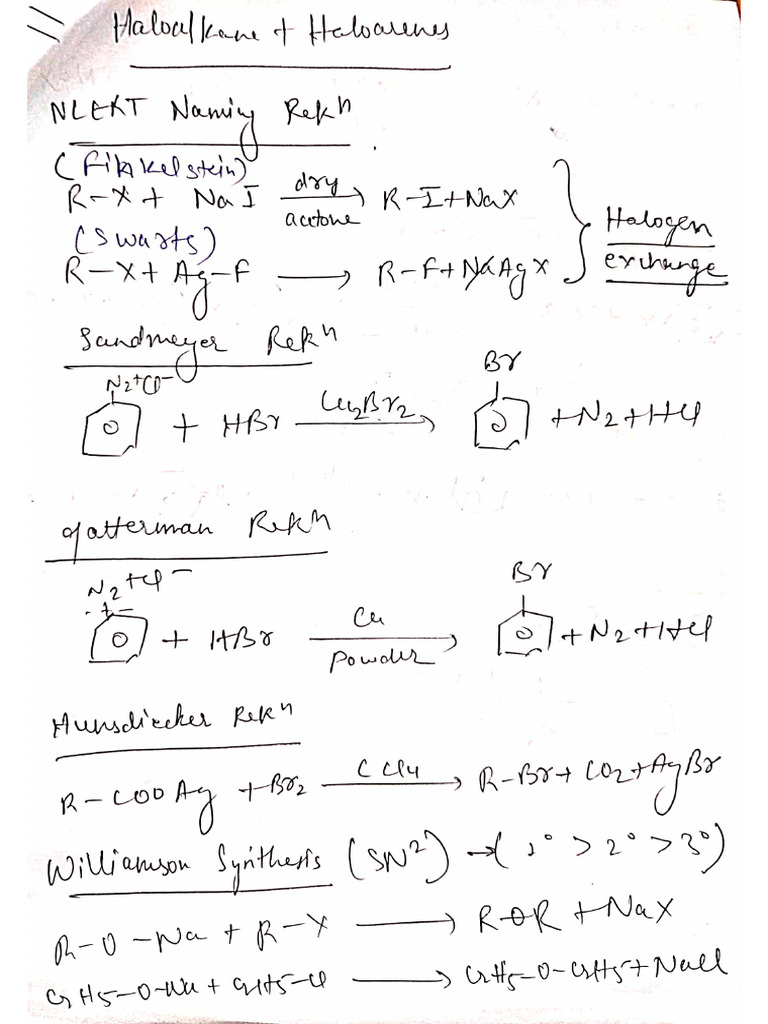 Haloalkane + Haloarenes
NLEKT Naming Rekⁿ
(Finkelstein)
R-X + NaI dry acetone → R-I + NaX
(Swarts)
R-X + Ag-F → R-F + AgX
Halogen exchange
Sandmeyer Rekⁿ
N2+Cl-
Br
+ HBr Cu2Br2 → + N2 + HCl
Gatterman Rekⁿ
N2+Cl-
Br
+ HBr Cu Powder → + N2 + HCl
Hunsdiecker Rekⁿ
R-COOAg + Br2 CCl4 → R-Br + CO2 + AgBr
Williamson Synthesis (SN²) → (1° > 2° > 3°)
R-O-Na + R-X → ROR + NaX
C2H5-O-Na + C2H5-Cl → C2H5-O-C2H5 + NaCl